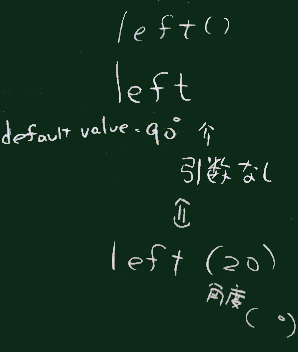 left()
left
default value = 90° 个
引数なし
⇕
left (20)
角度
(°)